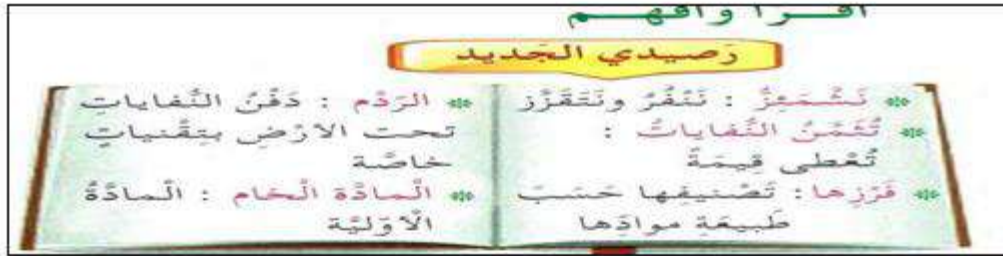 أقـــرأ وأفهـــم
رَصيدي الجَديد
نَشْمَئِزُّ : نَنْفُرُ ونَتَقَزَّز
تُثَمَّنُ النُّفاياتُ :
تُعْطى قِيمَةً
فَرْزِها : تَصْنيفِها حَسَبَ
طَبيعَةِ موادِّها
الرَدْم : دَفْنُ النُّفاياتِ
تحت الأرْضِ بِتِقْنياتٍ
خاصَّة
الْمادَّة الْخام : الْمادَّةُ
الْأَوَّليَّة